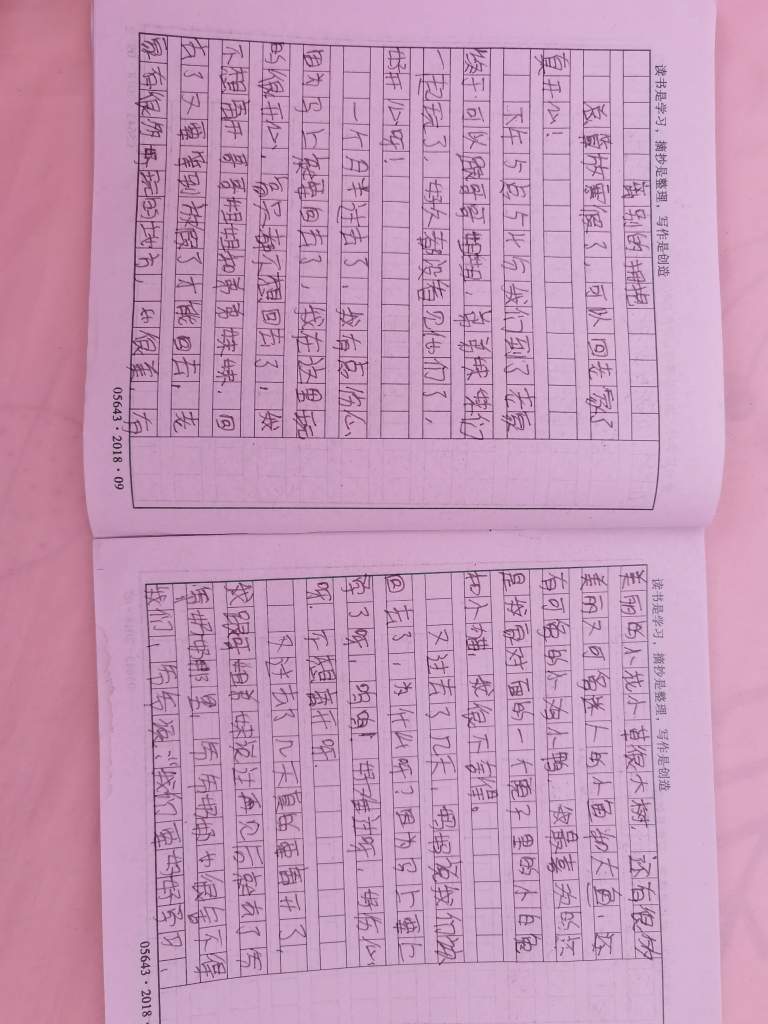 读书是学习，摘抄是整理，写作是创造
离别的拥抱
放暑假了，可以回老家了
真开心！
下午5点54分我们到了老家
终于可以跟哥哥姐姐，弟弟妹妹们
一起玩了，好久都没看见他们了，
好开心呀！
一个月半过去了，我有点伤心
因为马上要回去了，我在这里玩
的很开心，都不想回去了，
不想离开哥哥姐姐和弟弟妹妹，回
去了又要等到放假了才能回去，老
家有很多好玩的地方，也很美，有
05643·2018·09
读书是学习，摘抄是整理，写作是创造
美丽的小花小草很大树，还有很多
美丽又可爱迷人的小鱼和大鱼，还
有可爱的小鸡小鸭，我最喜欢的还
是爷爷对面的一个院子里的小白兔
和小猫，我很不舍得。
又过去了几天，妈妈说我们要
回去了，为什么呀？因为马上要上
学了呀，呜呜！好难过呀，好伤心
呀，不想离开呀
又过去了几天真的要离开了，
我跟哥姐弟妹说过再见后就去了爷
爷奶奶那里，爷爷奶奶也很舍不得
我们，爷爷说：“我们要好好学习，
05643·2018·